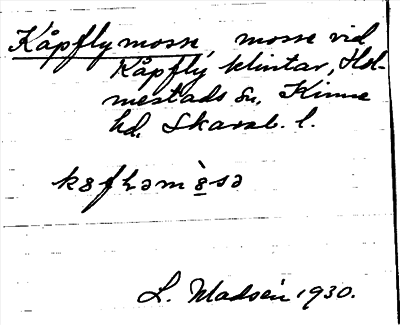 Kåpflymosse, mosse vid
Kåpflý klintar, Hol-
mestads sn, Kinne
hd, Skarab. l.
L. Madsén 1930.